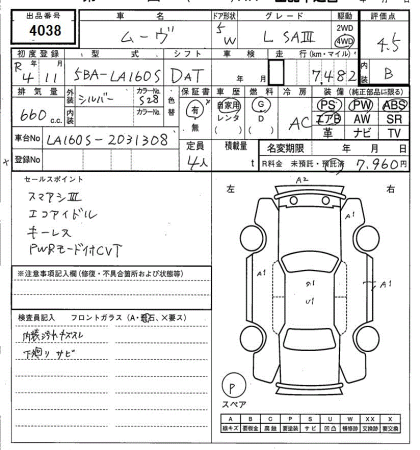 出品番号 4038
車名 ムーヴ
ドア形状 5 W
グレード L SAⅢ
駆動 2WD 4WD
評価点 4.5
初度登録 R 4年 11月
型式 5BA-LA160S
シフト DAT
車検 年 月
走行(km・マイル) 7,482
内装 B
排気量 660 c.c.
外装 シルバー カラーNo. S28
内装 カラーNo.
色替
保証書 有 無
車歴 自家用 レンタ
燃料 G D
冷房 AC
装備(純正部品に限る)
PS PW ABS
エアB AW SR
革 ナビ TV
車台No LA160S-2031308
登録No.
定員 4人
積載量 t
名変期限 年 月 日
R料金 未預託・預託済 7,960円
セールスポイント
スマアシⅢ
エコアイドル
キーレス
PWRモード付CVT
※注意事項記入欄(修復・不具合箇所および状態等)
検査員記入 フロントガラス(A・飛石、×要ス)
下廻りサビ
左 右
A2
A1
A1
A1
U1
P
スペア
A B C P S U W X XX
線キズ 要板金 腐蝕 要塗装 サビ 凹凸 補修跡 要交換 交換済